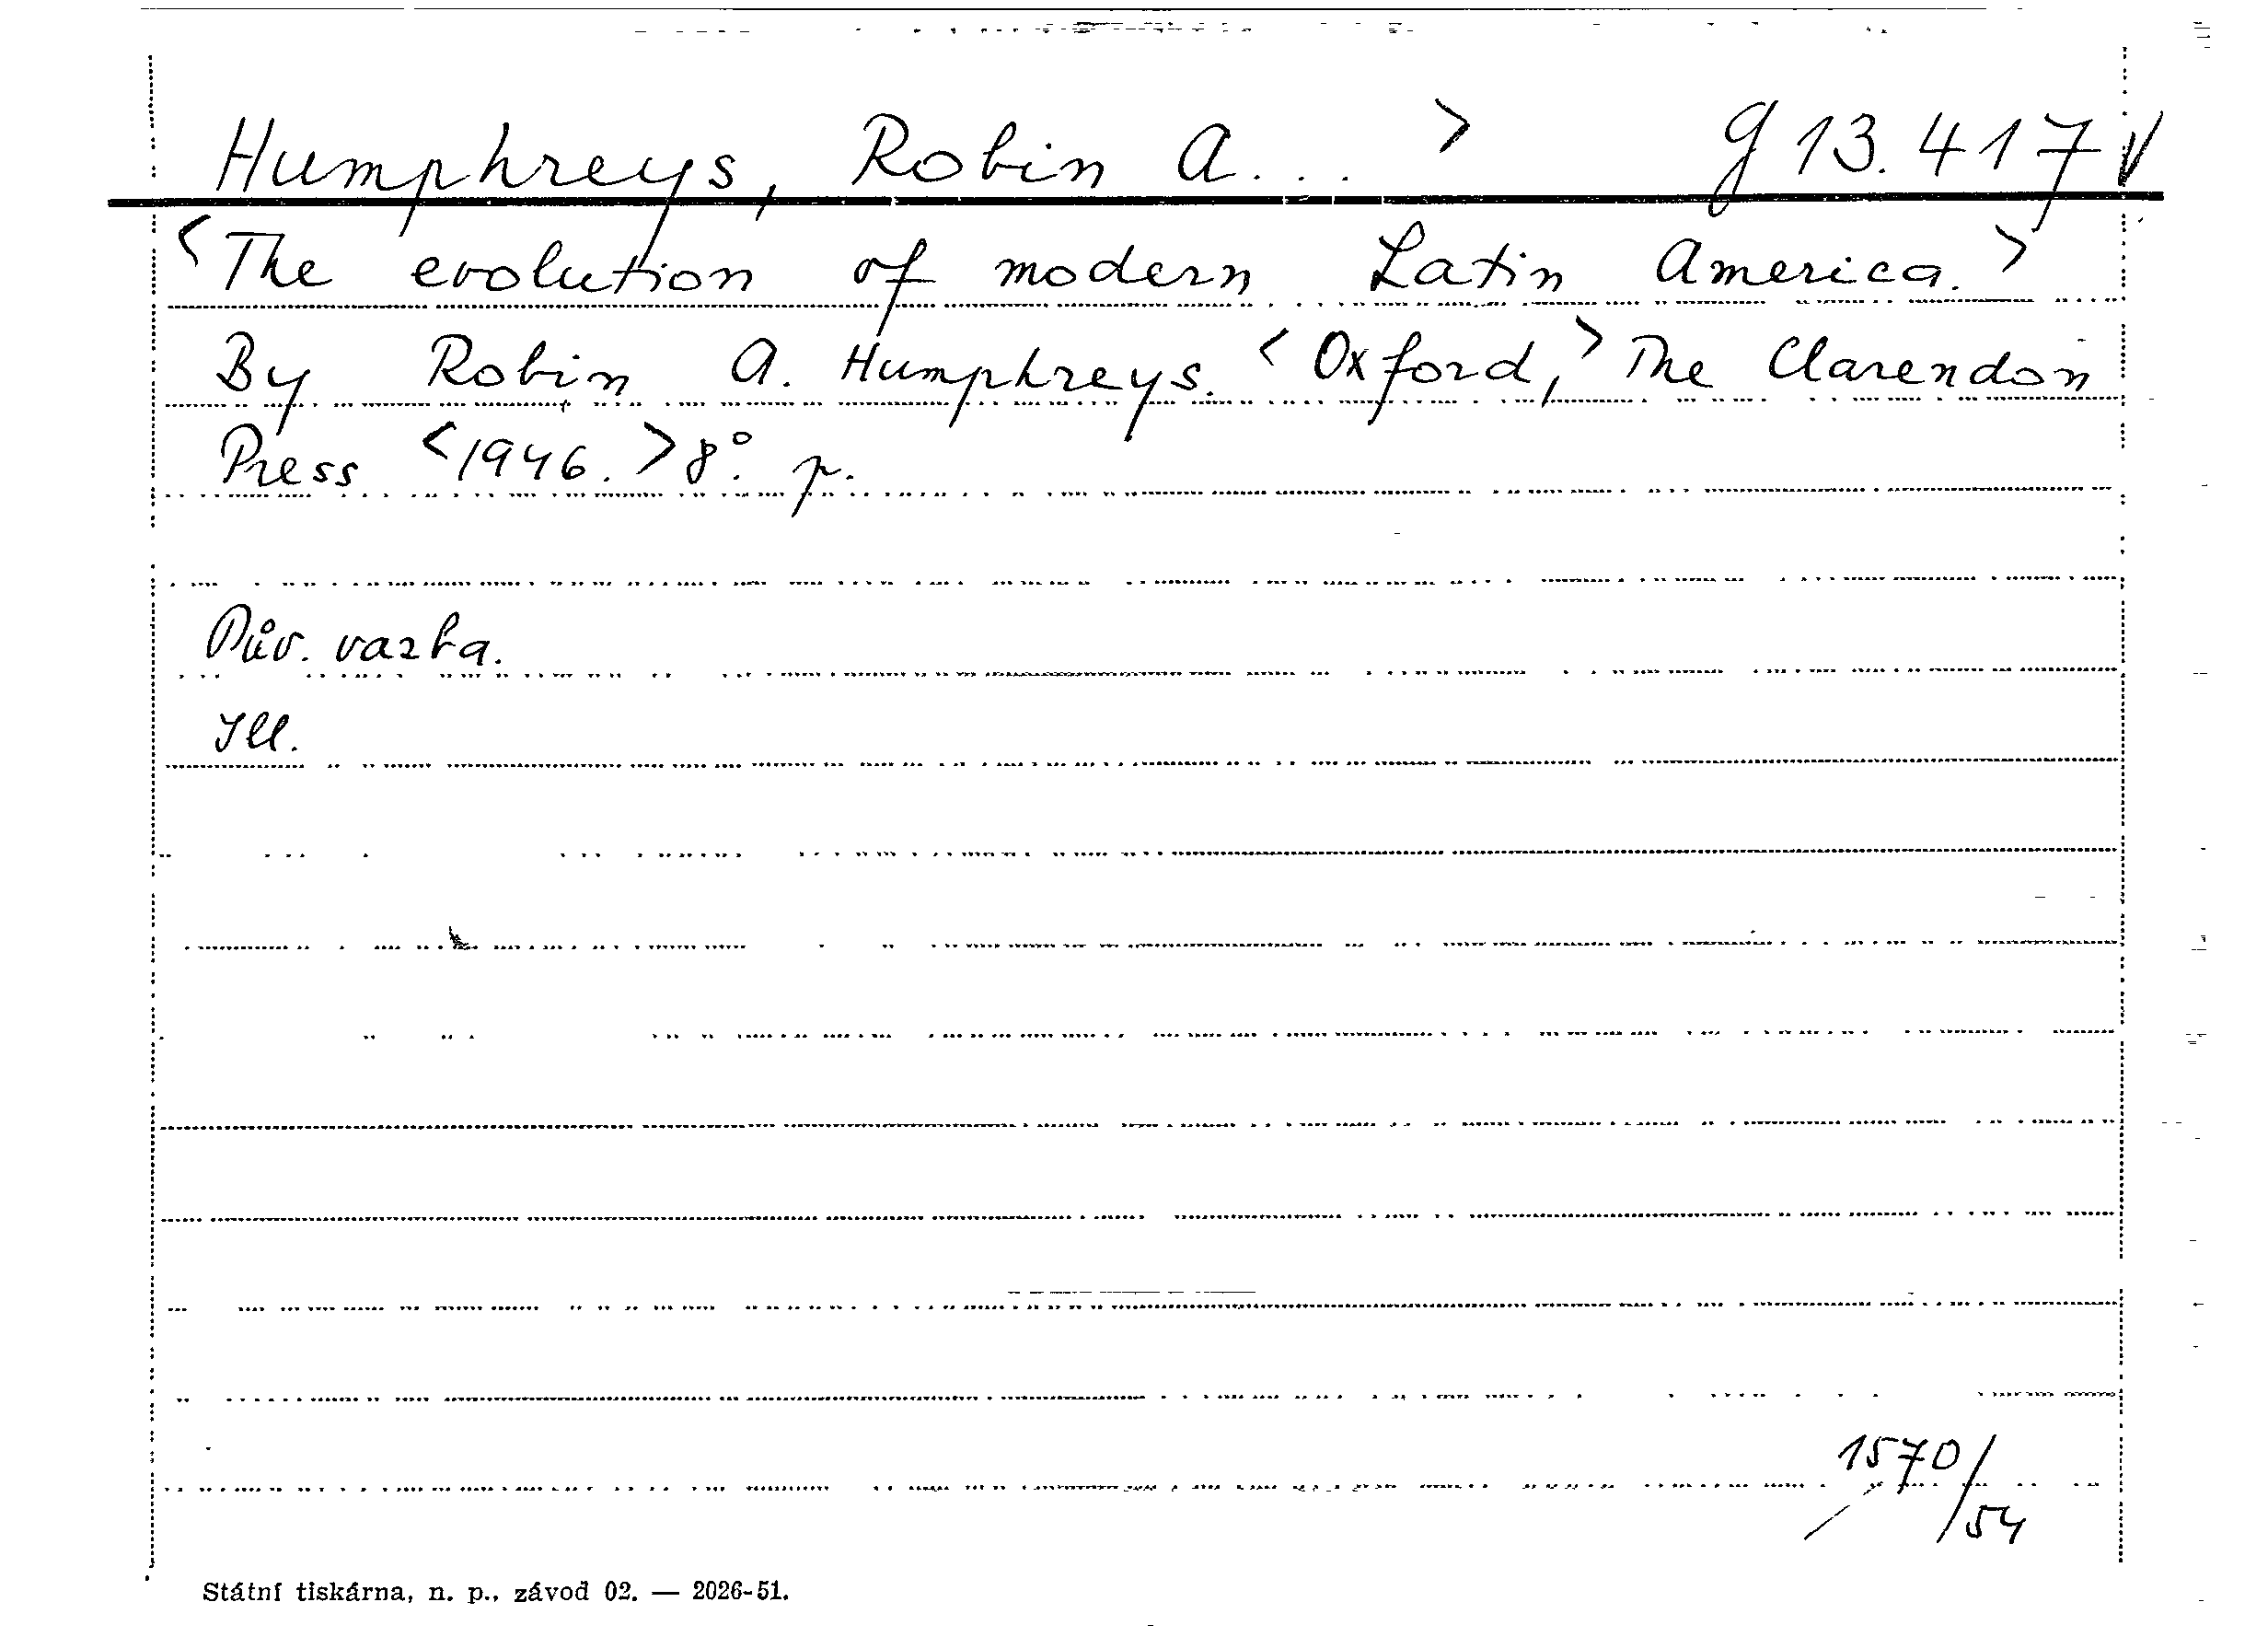 Humphreys, Robin A... > g 13.417 V
<The evolution of modern Latin America.>
By Robin A. Humphreys. <Oxford,> The Clarendon
Press <1946.> 8°. p.
Pův. vazba.
Ill.
1570/
/54
Státní tiskárna, n. p., závod 02. — 2026-51.